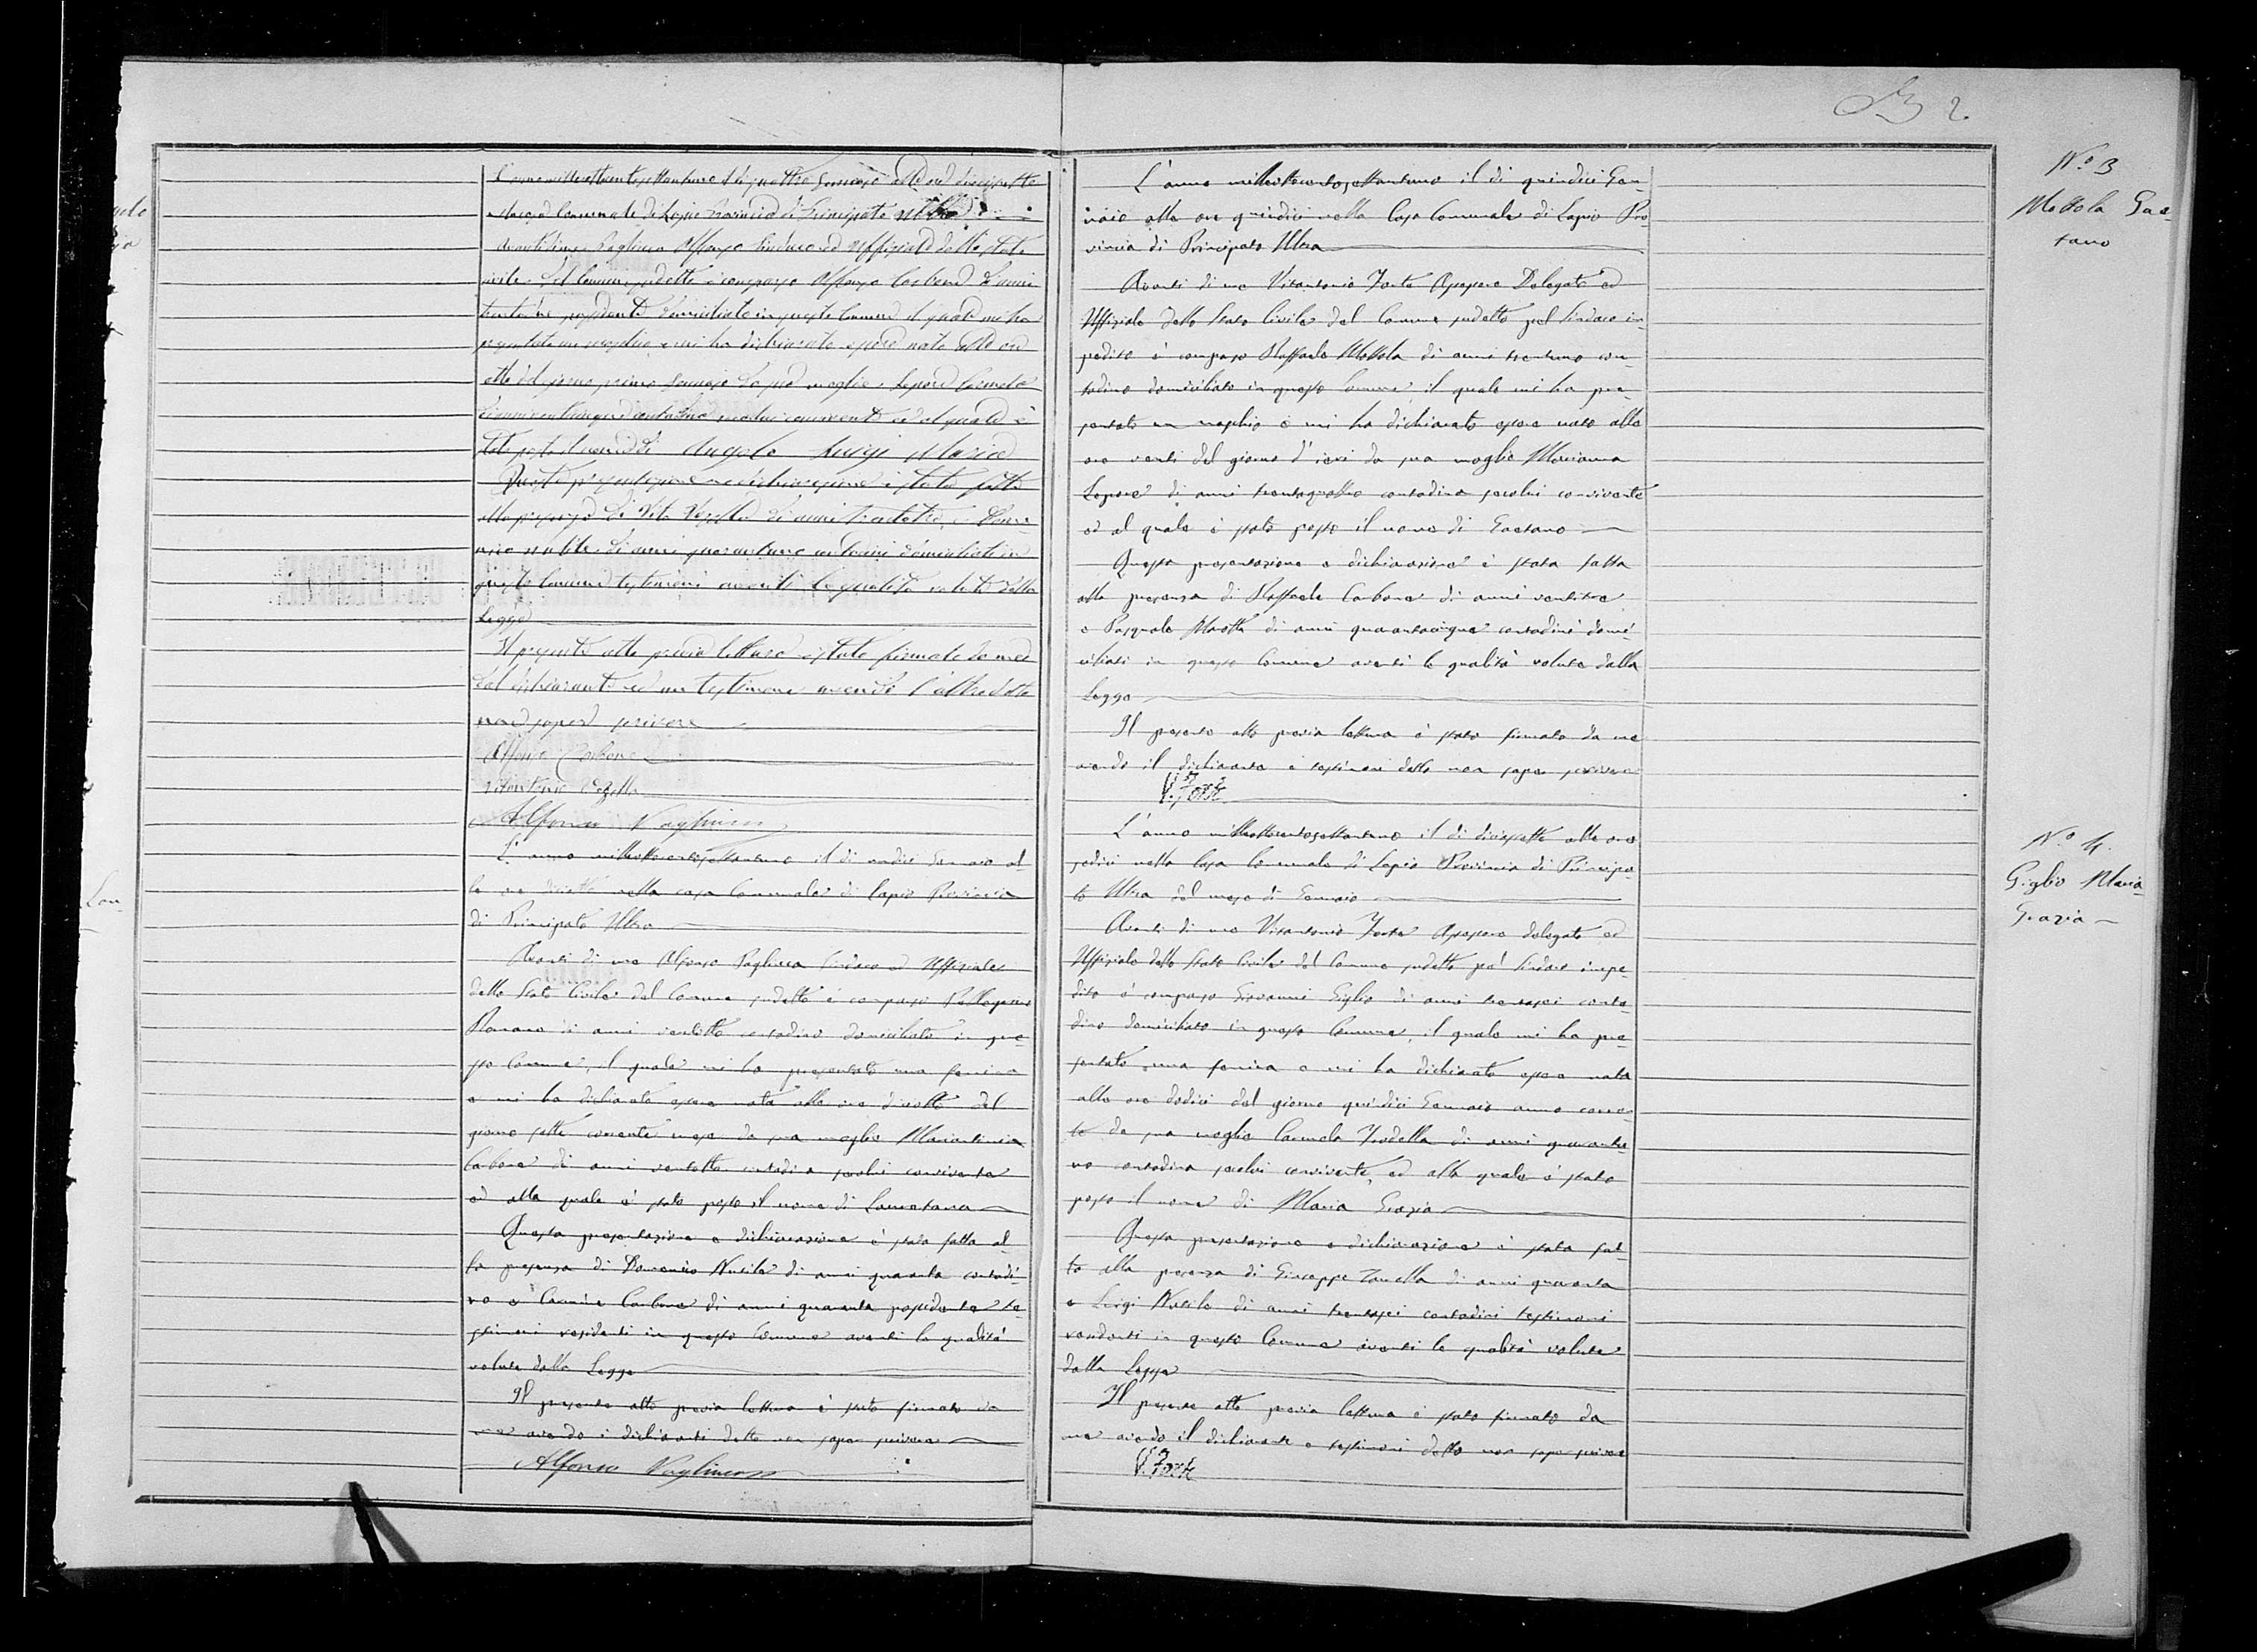 L'anno milleottocentosettantuno il dì quattro Gennajo alle ore diecisette
nella casa Comunale di Lapio Provincia di Principato Ultra
Avanti di me Pagliuca Alfonso Sindaco ed Uffiziale dello Stato
civile del Comune sudetto è comparso Alfonso Carbone di anni
trentatre possidente domiciliato in questo Comune il quale mi ha
presentato un maschio e mi ha dichiarato essere nato alle ore
otto del giorno primo Gennajo da sua moglie Lepore Carmela
convivente ed al quale è
stato posto il nome di Angelo Luigi Maria
Questa presentazione e dichiarazione è stata fatta
alla presenza di Vito Vozella di anni trentatre, e Dome-
nico Nutile di anni quarantuno contadini domiciliati in
questo Comune testimoni aventi le qualità volute dalla
Legge
Il presente atto previa lettura è stato firmato da me
dal dichiarante ed un testimone avendo l'altro detto
non sapere scrivere
Alfonso Carbone
Alfonso Pagliuca
L'anno milleottocentosettantuno il dì undici Gennaio al-
le ore dieciotto nella casa Comunale di Lapio Provincia
di Principato Ultra
Avanti di me Alfonso Pagliuca Sindaco ed Uffiziale
dello Stato Civile del Comune sudetto è comparso Pellegrino
Romano di anni ventotto contadino domiciliato in que-
sto Comune, il quale mi ha presentato una femina
e mi ha dichiarato essere nata alle ore dieciotto del
giorno sette corrente mese da sua moglie Mariantonia
Carbone di anni ventotto contadina secolui convivente
ed alla quale è stato posto il nome di Lauretana
Questa presentazione e dichiarazione è stata fatta al-
la presenza di Domenico Nutile di anni quaranta contadi-
no e Carmine Carbone di anni quaranta possidente te-
stimoni residenti in questo Comune aventi le qualità
volute dalla Legge
Il presente atto previa lettura è stato firmato da
me avendo i dichiaranti detto non saper scrivere
Alfonso Pagliuca
2
N.° 3
Mottola Gae-
tano
L'anno milleottocentosettantuno il dì quindici Gen-
naio alle ore quindici nella Casa Comunale di Lapio Pro-
vincia di Principato Ultra
Avanti di me Vitantonio Forte Assessore Delegato ed
Uffiziale dello Stato Civile del Comune sudetto pel Sindaco im-
pedito è comparso Raffaele Mottola di anni trentuno con-
tadino domiciliato in questo Comune, il quale mi ha pre-
sentato un maschio e mi ha dichiarato essere nato alle
ore venti del giorno d'ieri da sua moglie Marianna
Lepore di anni trentaquattro contadina secolui convivente
ed al quale è stato posto il nome di Gaetano
Questa presentazione e dichiarazione è stata fatta
alla presenza di Raffaele Carbone di anni ventitre
e Pasquale di anni quarantacinque contadini domi-
ciliati in questo Comune aventi le qualità volute dalla
Legge
Il presente atto previa lettura è stato firmato da me
avendo il dichiarante e testimoni detto non saper scrivere
V. Forte
N.° 4.
Giglio Maria
Grazia
L'anno milleottocentosettantuno il dì diecisette alle ore
sedici nella Casa Comunale di Lapio Provincia di Principa-
to Ultra del mese di Gennaio
Avanti di me Vitantonio Forte Assessore delegato ed
Uffiziale dello Stato Civile del Comune sudetto pel Sindaco impe-
dito è comparso Giovanni Giglio di anni trentasei conta-
dino domiciliato in questo Comune, il quale mi ha pre-
sentato una femina e mi ha dichiarato essere nata
alle ore dodici del giorno quindici Gennaio anno corren-
te da sua moglie Carmela Trodella di anni quarantu-
no contadina secolui convivente, ed alla quale è stato
posto il nome di Maria Grazia
Questa presentazione e dichiarazione è stata fat-
ta alla presenza di Giuseppe Zanella di anni quaranta
e Luigi Nutile di anni trentasei contadini testimoni
residenti in questo Comune aventi le qualità volute
dalla Legge
Il presente atto previa lettura è stato firmato da
me avendo il dichiarante e testimoni detto non saper scrivere
V. Forte